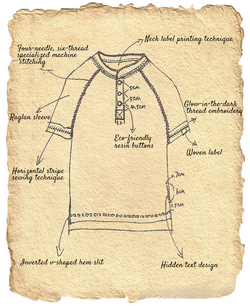 Neck label printing technique
Four-needle, six-thread
specialized machine
stitching
5cm
5cm
Glow-in-the-dark
thread embroidery
Raglan sleeve
Eco-friendly
resin buttons
Woven label
Horizontal stripe
sewing technique
Inverted v-shaped hem slit
Hidden text design